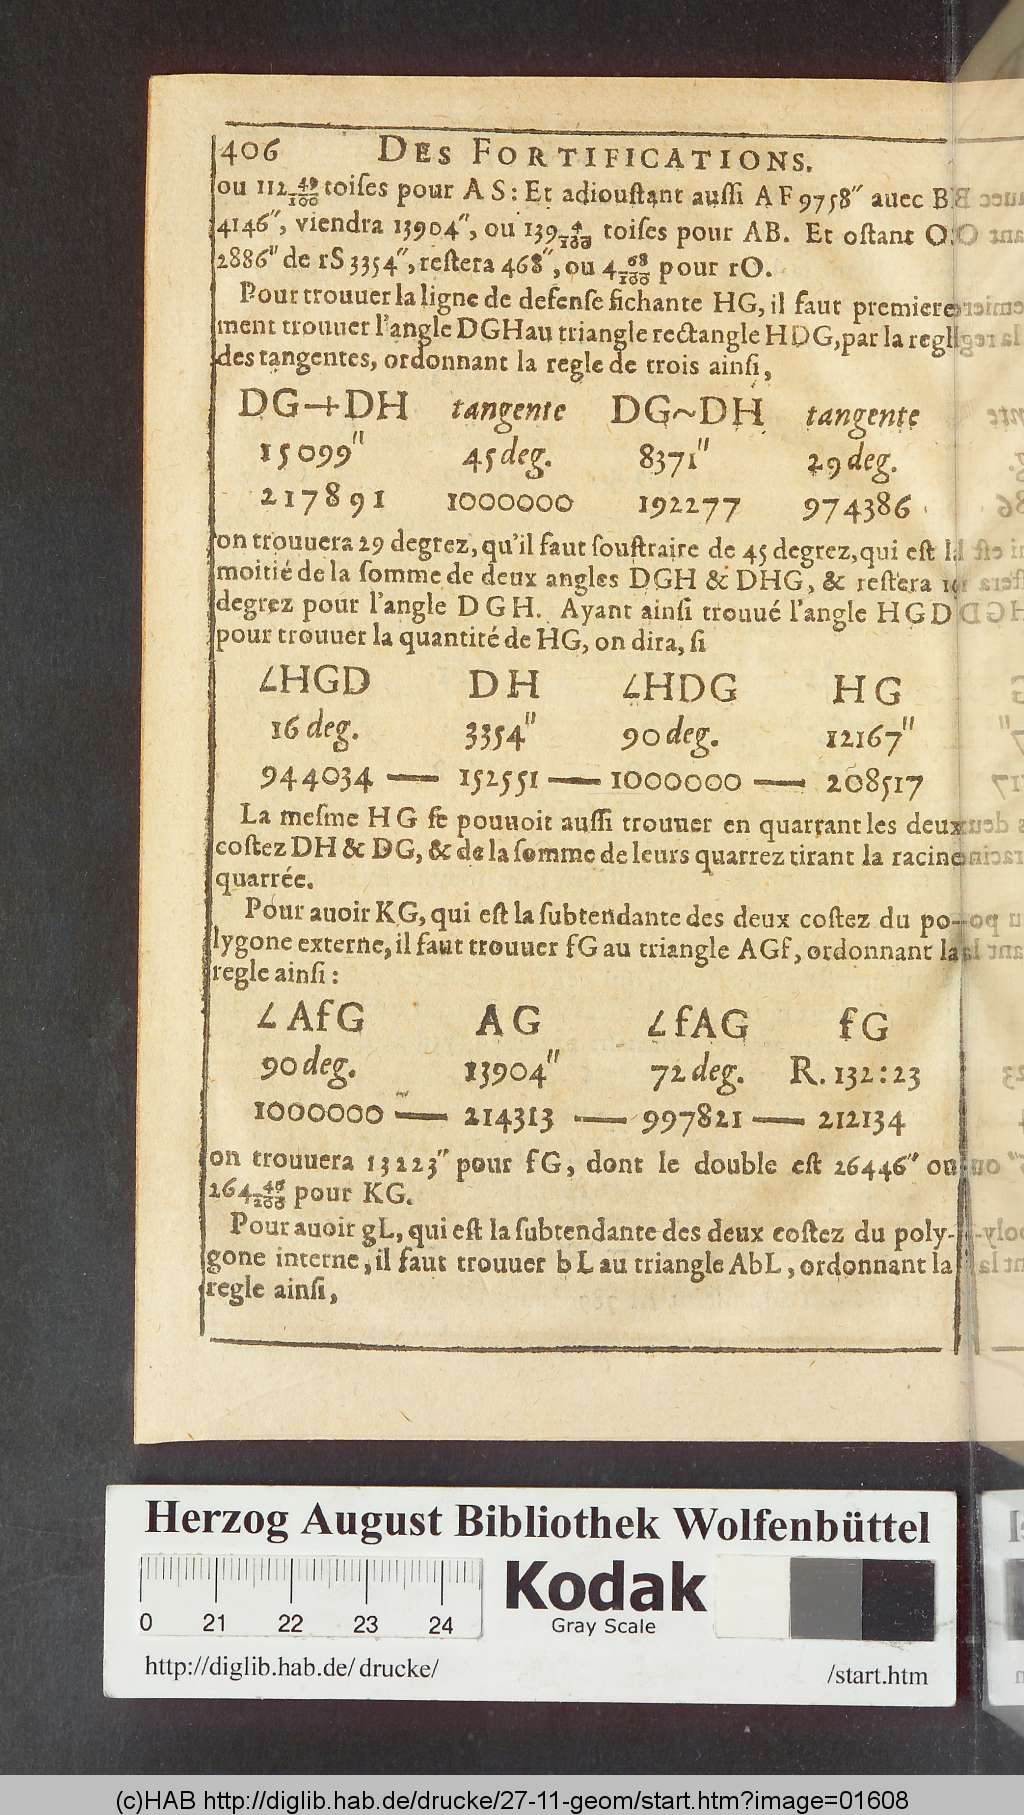 406 DES FORTIFICATIONS.
ou 112 49/100 toiſes pour A S : Et adiouſtant auſſi A F 9758″ auec B
4146″, viendra 13904″, ou 139 4/100 toiſes pour AB. Et oſtant O
2886″ de rS 3354″, reſtera 468″, ou 4 68/100 pour rO.
Pour trouuer la ligne de defenſe fichante HG, il faut premiere
ment trouuer l'angle DGH au triangle rectangle HDG, par la regl
des tangentes, ordonnant la regle de trois ainſi,
DG+DH tangente DG~DH tangente
15099″ 45 deg. 8371″ 29 deg.
217891 1000000 192277 974386
on trouuera 29 degrez, qu'il faut ſouſtraire de 45 degrez, qui eſt l
moitié de la ſomme de deux angles DGH & DHG, & reſtera
degrez pour l'angle DGH. Ayant ainſi trouué l'angle HGD
pour trouuer la quantité de HG, on dira, ſi
∠HGD DH ∠HDG HG
16 deg. 3354″ 90 deg. 12167″
944034 — 152551 — 1000000 — 208517
La meſme HG ſe pouuoit auſſi trouuer en quarrant les deux
coſtez DH & DG, & de la ſomme de leurs quarrez tirant la racine
quarrée.
Pour auoir KG, qui eſt la ſubtendante des deux coſtez du po-
lygone externe, il faut trouuer fG au triangle AGf, ordonnant la
regle ainſi :
∠AfG AG ∠fAG fG
90 deg. 13904″ 72 deg. R. 132:23
1000000 — 214313 — 997821 — 212134
on trouuera 13223″ pour fG, dont le double eſt 26446″ ou
264 46/100 pour KG.
Pour auoir gL, qui eſt la ſubtendante des deux coſtez du poly-
gone interne, il faut trouuer bL au triangle AbL, ordonnant la
regle ainſi,
Herzog August Bibliothek Wolfenbüttel
Kodak
Gray Scale
0 21 22 23 24
http://diglib.hab.de/drucke/ /start.htm
(c)HAB http://diglib.hab.de/drucke/27-11-geom/start.htm?image=01608